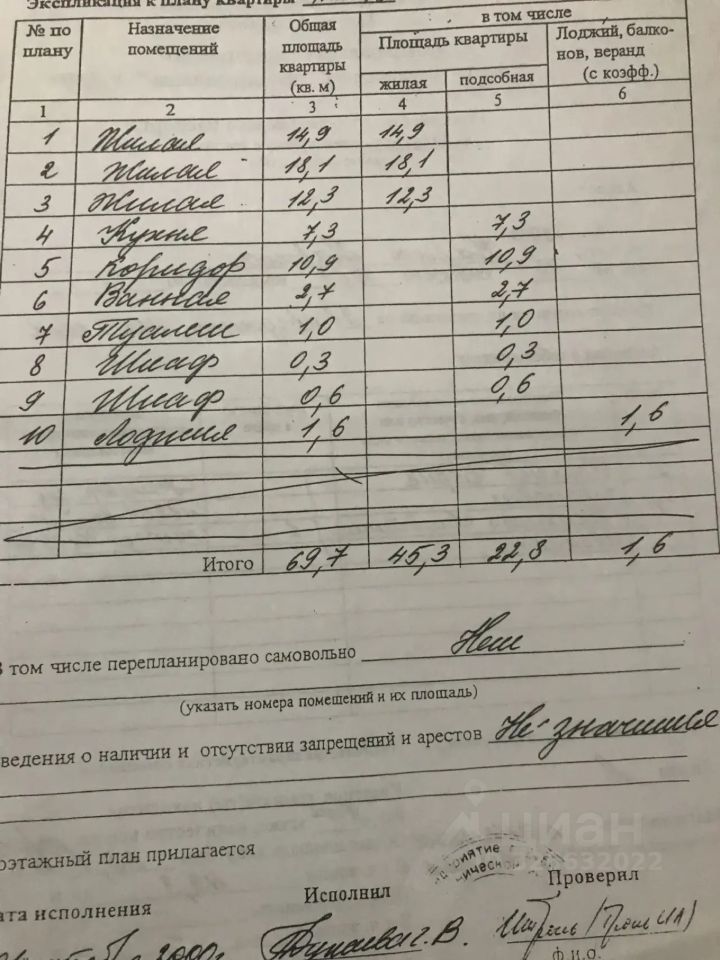 Экспликация к плану квартиры
№ по плану Назначение помещений Общая площадь квартиры (кв. м) в том числе
Площадь квартиры Лоджий, балко-нов, веранд (с коэфф.)
жилая подсобная
1 2 3 4 5 6
1 Жилая 14,9 14,9
2 Жилая 18,1 18,1
3 Жилая 12,3 12,3
4 Кухня 7,3 7,3
5 Коридор 10,9 10,9
6 Ванная 2,7 2,7
7 Туалет 1,0 1,0
8 Шкаф 0,3 0,3
9 Шкаф 0,6 0,6
10 Лоджия 1,6 1,6
Итого 69,7 45,3 22,8 1,6
В том числе перепланировано самовольно Нет
(указать номера помещений и их площадь)
ведения о наличии и отсутствии запрещений и арестов Не значится
циан
оэтажный план прилагается
ата исполнения Исполнил Проверил
2000г.
Ф.И.О.